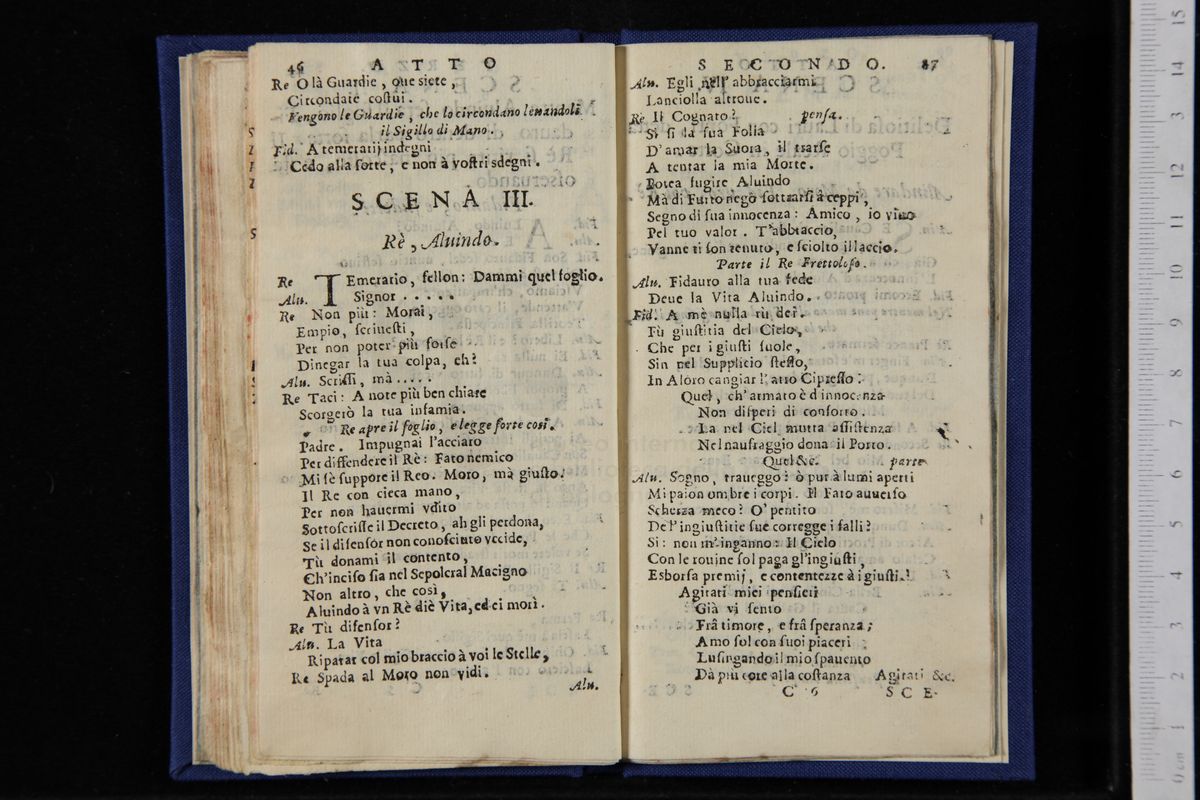 46 ATTO
Re O là Guardie, oue siete,
Circondate costui.
Vengono le Guardie, che lo circondano leuandoli
il Sigillo di Mano.
Fid. A temerarij indegni
Cedo alla sorte, e non à vostri sdegni.
SCENA III.
Rè, Aluindo.
Re TEmerario, fellon: Dammi quel foglio.
Alu. Signor . . . . .
Re Non più: Morai,
Empio, scriuesti,
Per non poter più forse
Dinegar la tua colpa, eh?
Alu. Scrissi, mà . . . . .
Re Taci: A note più ben chiare
Scorgerò la tua infamia.
Re apre il foglio, e legge forte così.
Padre. Impugnai l'acciaro
Per diffendere il Rè: Fato nemico
Mi fè suppore il Reo. Moro, mà giusto.
Il Re con cieca mano,
Per non hauermi vdito
Sottoscrisse il Decreto, ah gli perdona,
Se il difensor non conosciuto vccide,
Tù donami il contento,
Ch'inciso sia nel Sepolcral Macigno
Non altro, che così,
Aluindo à vn Rè diè Vita, ed ei morì.
Re Tù difensor?
Alu. La Vita
Riparar col mio braccio à voi le Stelle,
Re Spada al Moro non vidi.
Alu.
SECONDO. 87
Alu. Egli nell' abbracciarmi
Lanciolla altroue.
Rè Il Cognato? pensa.
Si sì la sua Folia
D'amar la Suora, il trasse
A tentar la mia Morte.
Potea fugire Aluindo
Mà di Furto negò sottrarsi à ceppi,
Segno di sua innocenza: Amico, io viuo
Pel tuo valor. T'abbraccio,
Vanne ti son tenuto, e sciolto il laccio.
Parte il Re Frettoloso.
Alu. Fidauro alla tua fede
Deue la Vita Aluindo.
Fid. A mè nulla tù dei.
Fù giustitia del Cielo,
Che per i giusti suole,
Sin nel Supplicio stesso,
In Aloro cangiar l'atro Cipresso.
Quel, ch'armato è d'innocenza
Non disperi di conforto.
La nel Ciel mutra assistenza
Nel naufraggio dona il Porto.
Quel &c. parte
Alu. Sogno, traueggo? ò pur à lumi aperti
Mi paion ombre i corpi. Il Fato auuerso
Scherza meco? O' pentito
De l'ingiustitie sue corregge i falli?
Si: non m'inganno: Il Cielo
Con le rouine sol paga gl'ingiusti,
Esborsa premij, e contentezze à i giusti.
Agitati miei pensieri
Già vi sento
Frà timore, e frà speranza;
Amo sol con suoi piaceri
Lusingando il mio spauento
Dà più core alla costanza Agitati &c.
C 6 SCE-